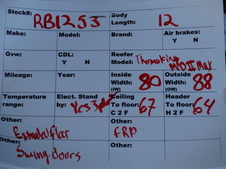 Stock#: RB1253 Body Length: 12
Make: Model: Brand: Air brakes: Y N
Gvw: CDL: Y N Reefer Model: Thermoking MDII Max
Mileage: Year: Inside Width: 80 Outside Width: 88
Temperature range: Elect. Stand by: Yes 3 phase Ceiling To floor: C 2 F 67 Header To floor: H 2 F 64
Other: Extruded floor Other: FRP
Swing doors Other: